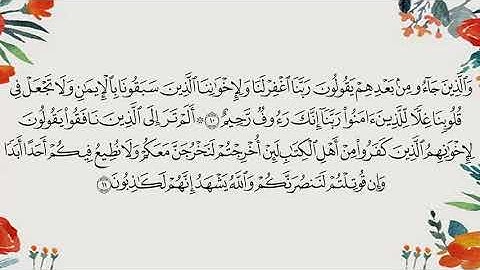 وَٱلَّذِينَ جَآءُو مِنۢ بَعۡدِهِمۡ يَقُولُونَ رَبَّنَا ٱغۡفِرۡ لَنَا وَلِإِخۡوَٰنِنَا ٱلَّذِينَ سَبَقُونَا بِٱلۡإِيمَٰنِ وَلَا تَجۡعَلۡ فِي
قُلُوبِنَا غِلّٗا لِّلَّذِينَ ءَامَنُواْ رَبَّنَآ إِنَّكَ رَءُوفٞ رَّحِيمٌ ١٠ ۞ أَلَمۡ تَرَ إِلَى ٱلَّذِينَ نَافَقُواْ يَقُولُونَ
لِإِخۡوَٰنِهِمُ ٱلَّذِينَ كَفَرُواْ مِنۡ أَهۡلِ ٱلۡكِتَٰبِ لَئِنۡ أُخۡرِجۡتُمۡ لَنَخۡرُجَنَّ مَعَكُمۡ وَلَا نُطِيعُ فِيكُمۡ أَحَدًا أَبَدٗا
وَإِن قُوتِلۡتُمۡ لَنَنصُرَنَّكُمۡ وَٱللَّهُ يَشۡهَدُ إِنَّهُمۡ لَكَٰذِبُونَ ١١